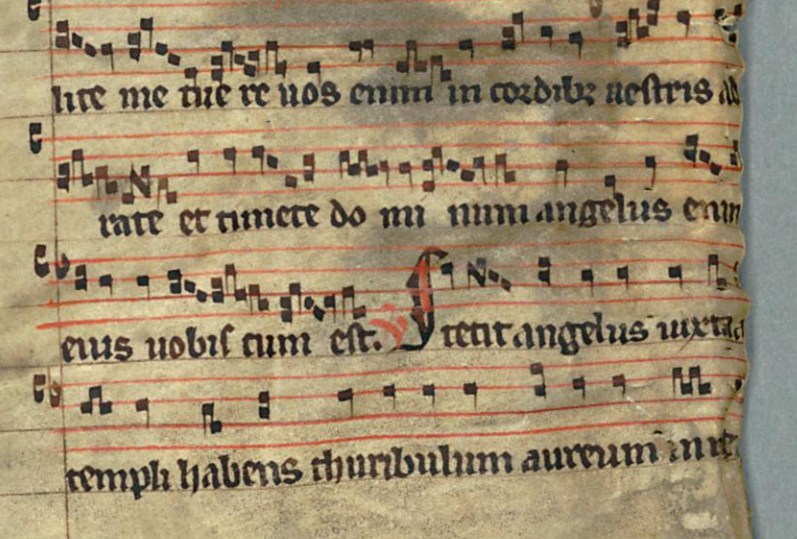 lite me tue re uos enim in cordibꝫ uestris ad
rate et timete do mi num angelus enim
eius uobis cum est. Stetit angelus iuxta
templi habens thuribulum aureum in